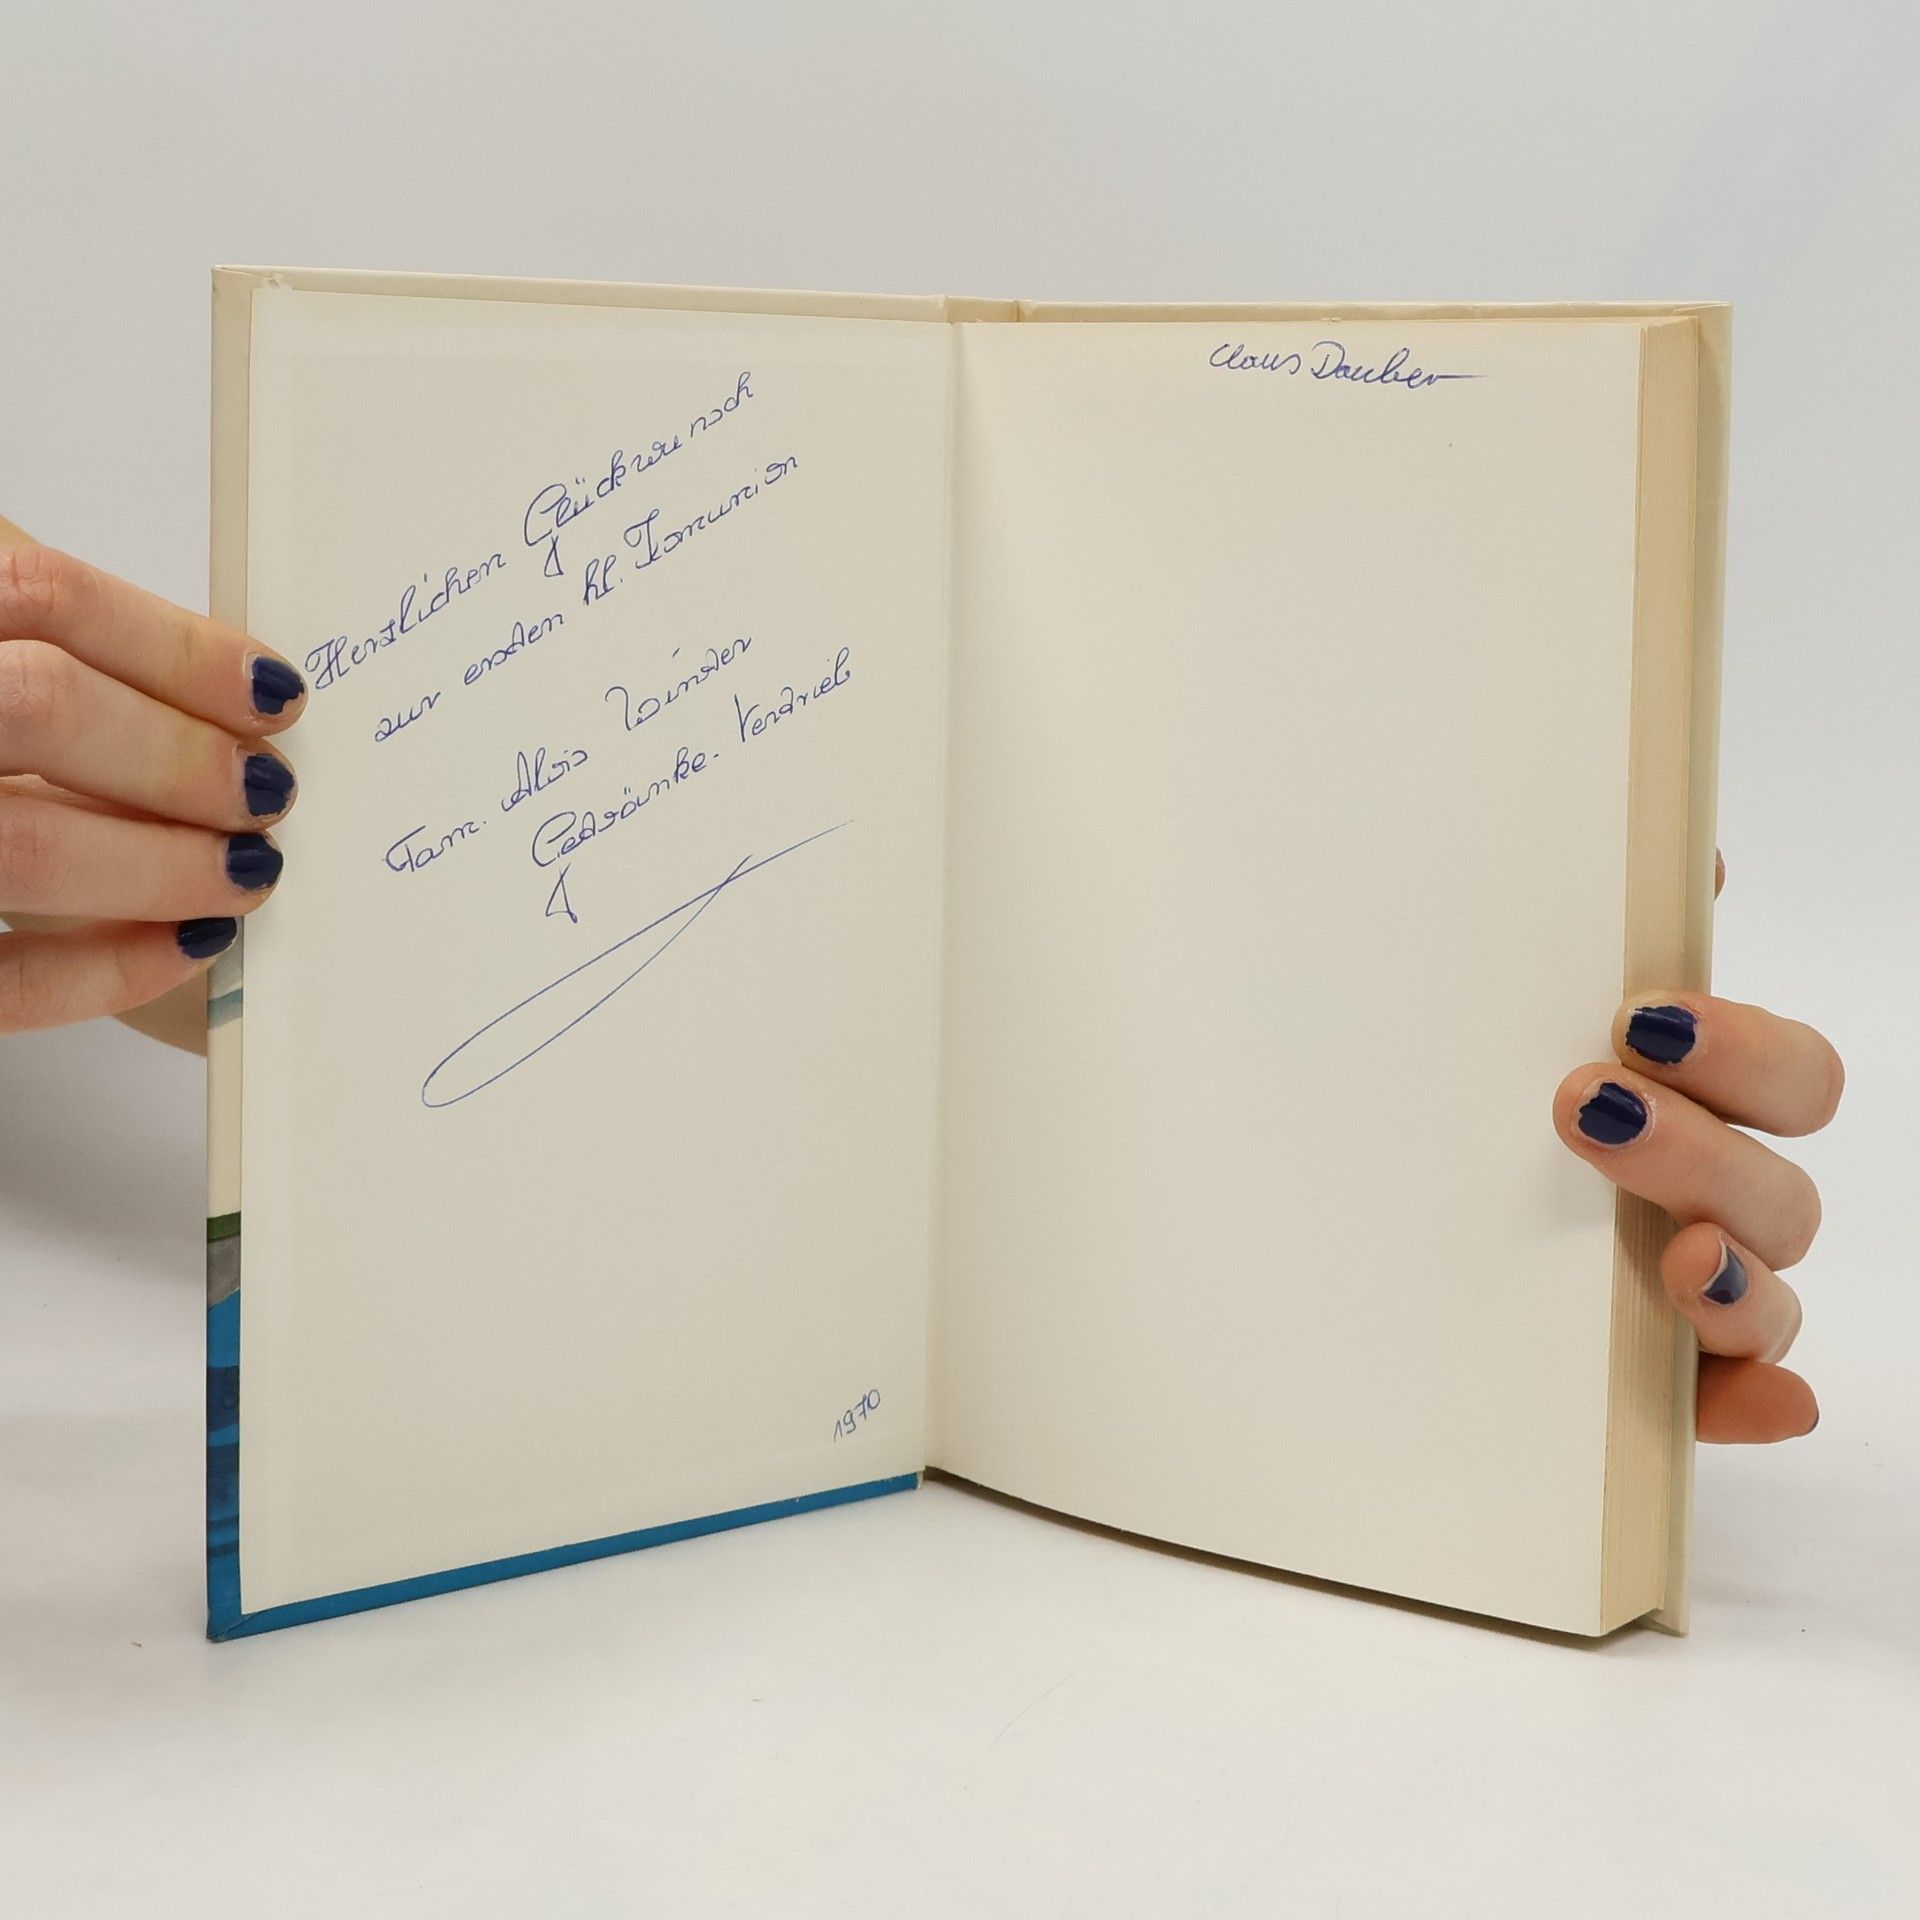 Herzlichen Glückwunsch
zur ersten hl. Komunion
Fam. Alois Winder
Getränke-Vertrieb
1970
Claus Dauber